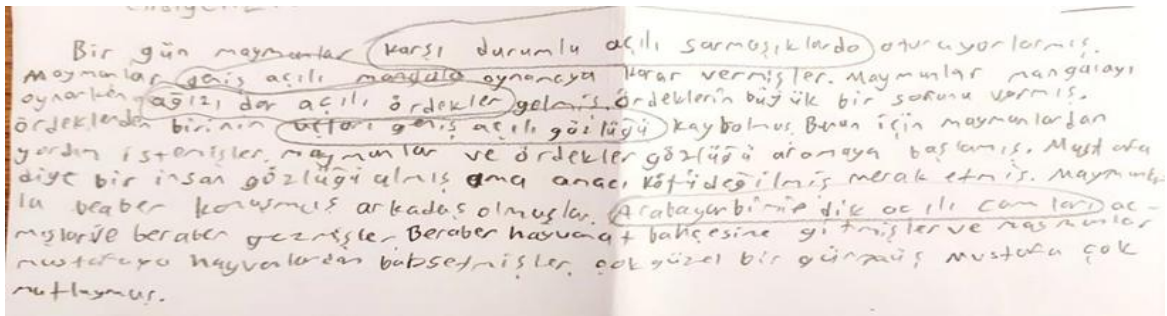 Bir gün maymunlar karşı durumlu açılı sarmaşıklarda oturuyorlarmış.
Maymunlar geniş açılı mangala oynamaya karar vermişler. Maymunlar mangalayı
oynarken ağızı dar açılı ördekler gelmiş. Ördeklerin büyük bir sorunu varmış.
ördeklerden birinin uçları geniş açılı gözlüğü kaybolmuş. Bunun için maymunlardan
yardım istemişler. maymunlar ve ördekler gözlüğü aramaya başlamış. Mustafa
diye bir insan gözlüğü almış ama amacı kötü değilmiş merak etmiş. Maymunlar-
la beaber konuşmuş arkadaş olmuşlar. Arabaya dik açılı camları aç-
mışlar ve beraber gezmişler. Beraber hayvanat bahçesine gitmişler ve maymunlar
mustafaya hayvanlardan bahsetmişler. çok güzel bir günmüş Mustafa çok
mutluymuş.